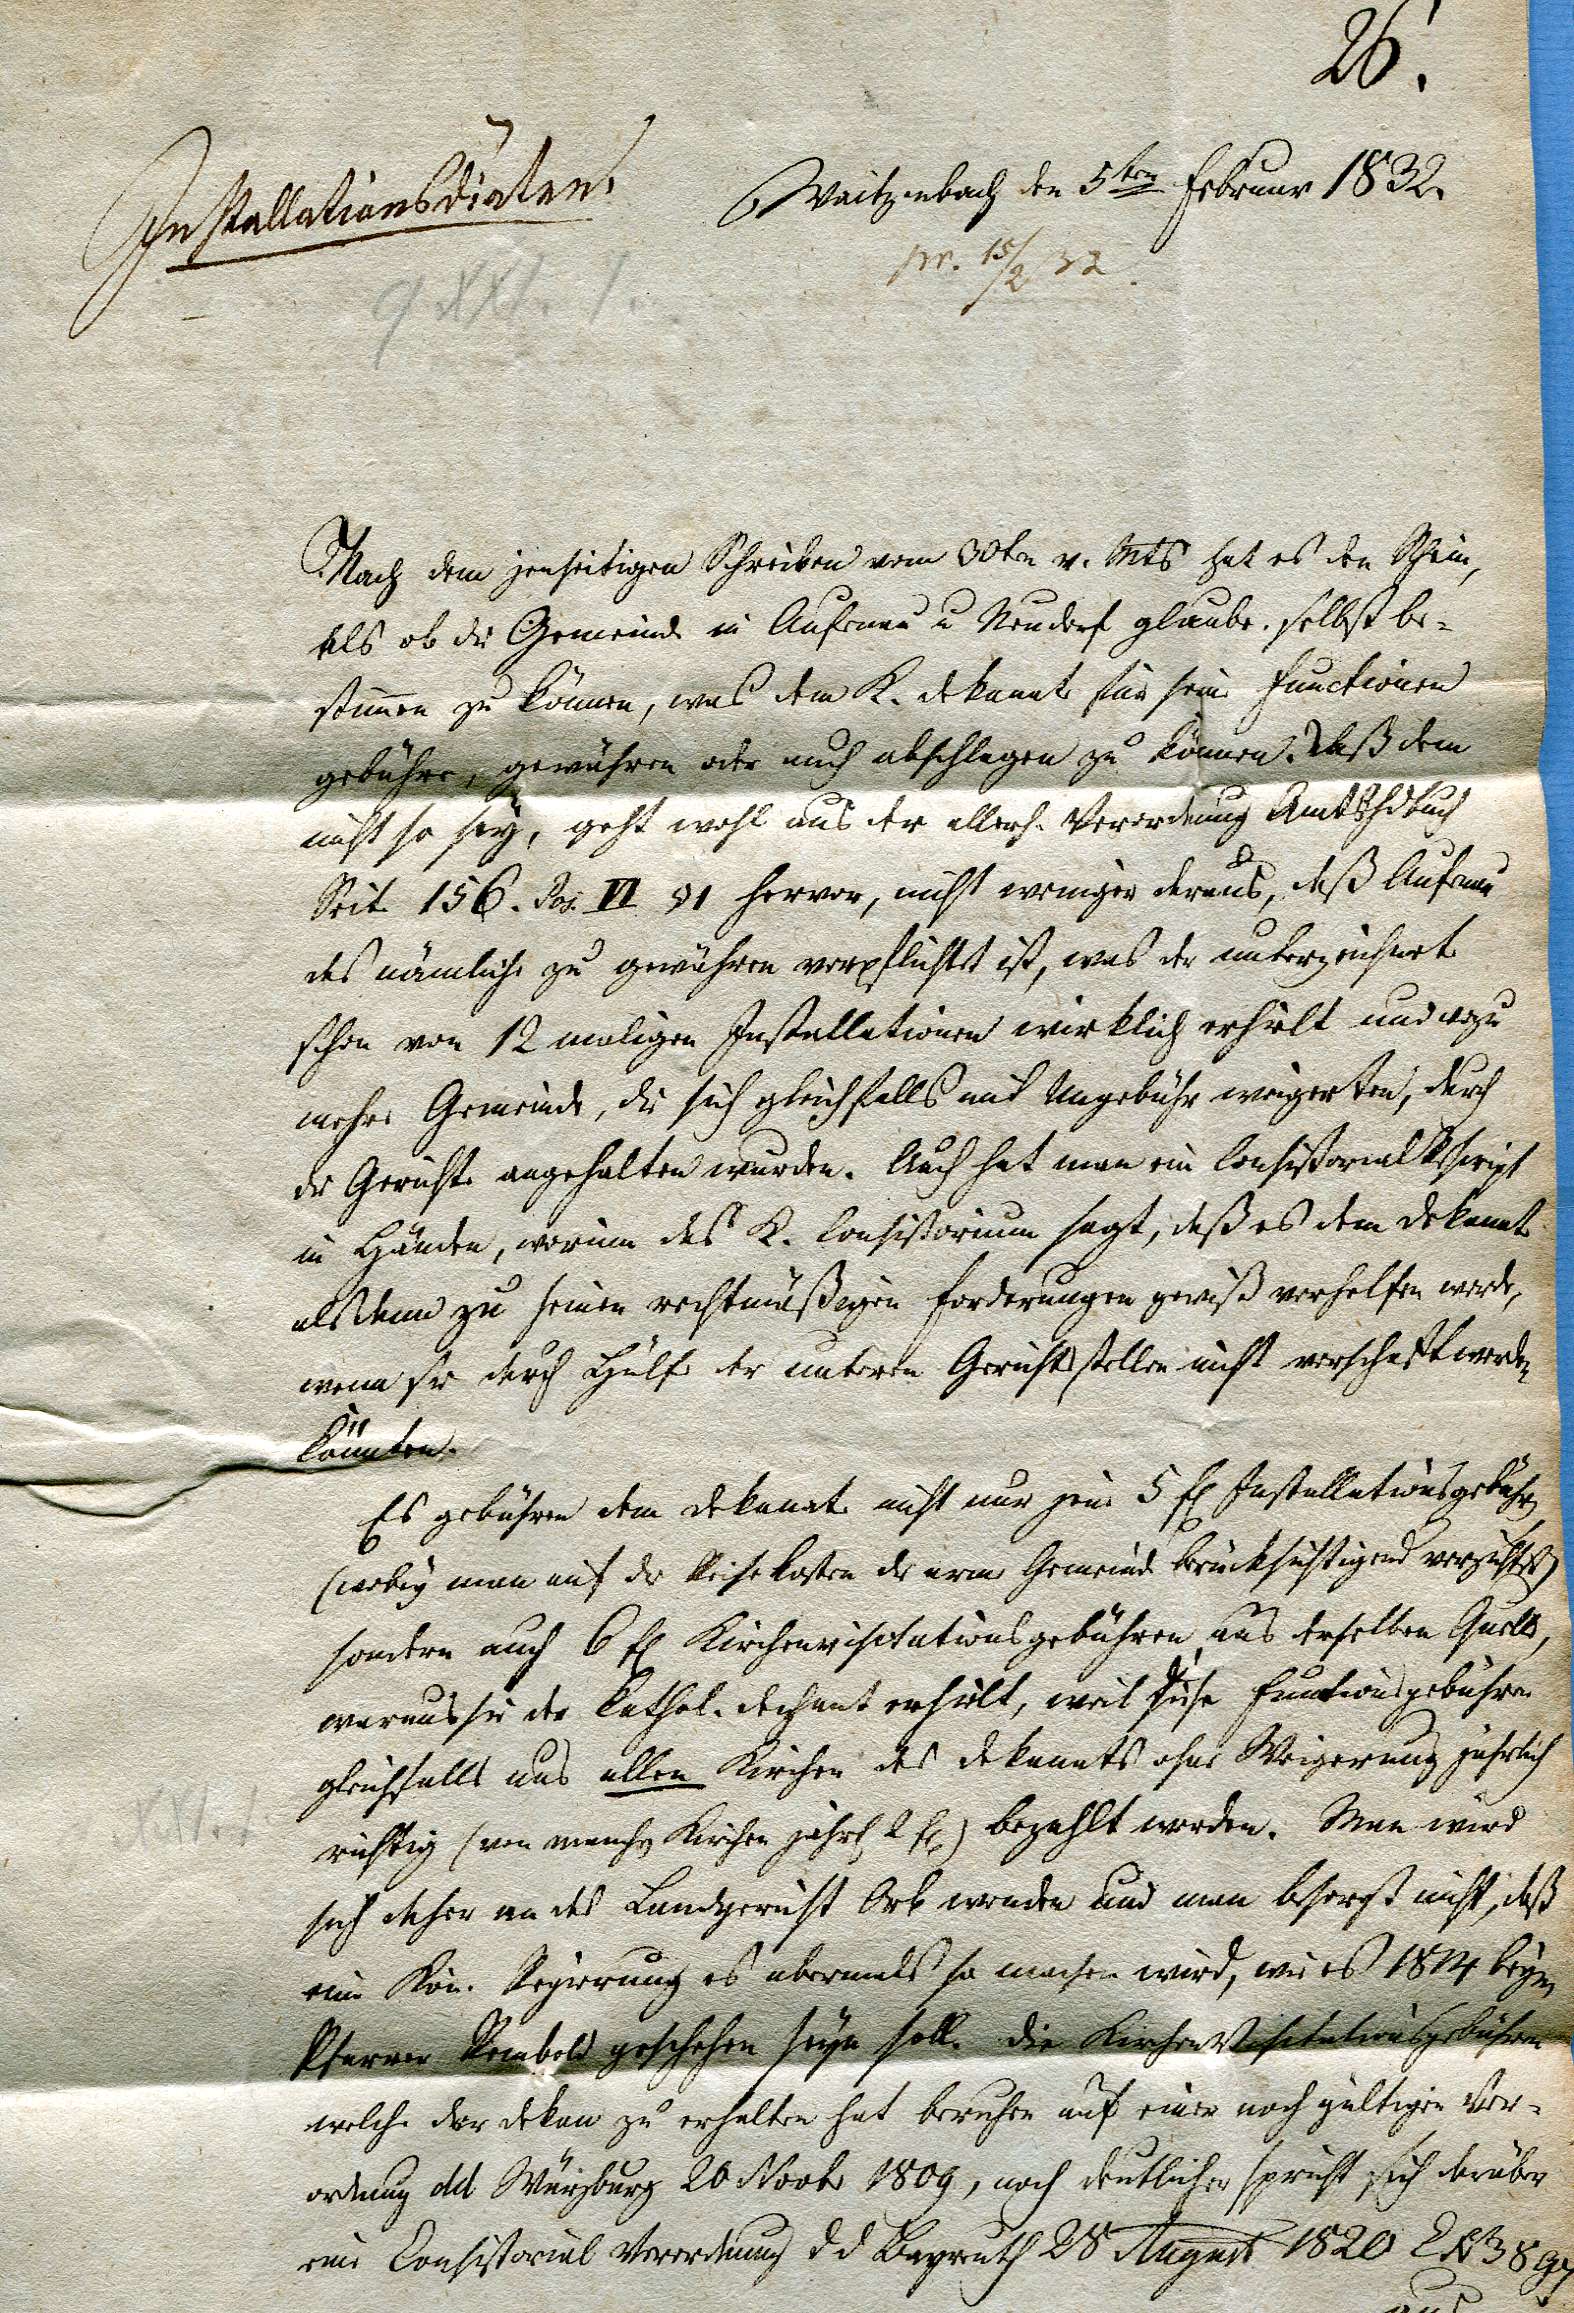 26.
Installationsdiäten
Waitzenbach den 5ten Februar 1832.
pr. 15/2 32.
Nach dem jenseitigen Schreiben vom 30ten v. Mts hat es den Schein,
als ob die Gemeinde in Aufenau u Neudorf glaube, selbst be-
stimmen zu können, was dem K. Dekanate für seine Functionen
gebühre, gewähren oder auch abschlagen zu können. Daß dem
nicht so sey, geht wohl aus der allerh. Verordnung Amtshdbuch
Seite 156. Pos. VI 91 hervor, nicht weniger daraus, daß Aufenau
das nämliche zu gewähren verpflichtet ist, was der unterzeichnete
schon von 12 maligen Installationen wirklich erhielt und wozu
mehre Gemeinde, die sich gleichfalls mit Ungebühr weigerten, durch
die Gerichte angehalten wurden. Auch hat man ein Consistorial Rescript
in Händen, worinn das K. Consistorium sagt, daß es dem Dekanate
alsdann zu seinen rechtmäßigen Forderungen gewiß verhelfen werde,
wenn sie durch Hülfe der unteren Gerichtsstellen nicht verschafft werden
könnten.
Es gebühren dem Dekanate nicht nur jene 5 fl Installationsgebühren
(wobey man auf die Reisekosten die arme Gemeinde berücksichtigend verzichtet)
sondern auch 6 fl Kirchenvisitationsgebühren aus derselben Quelle,
woraus sie der kathol. Dechant erhielt, weil diese Functionsgebühren
gleichfalls aus allen Kirchen des Dekanats ohne Weigerung jährlich
richtig (von manchen Kirchen jährl 2 fl) bezahlt werden. Man wird
sich daher an das Landgericht Orb wenden und man besorgt nicht, daß
eine Kön. Regierung es abermals so machen wird, wie es 1814 beym
Pfarrer Rembold geschehen seyn soll. Die Kirchenvisitationsgebühren
welche der Dekan zu erhalten hat beruhen auf einer noch gültigen Ver-
ordnung dd Würzburg 20 Novbr 1809, noch deutlicher spricht sich darüber
eine Consistorial Verordnung dd Bayreuth 28 August 1820
aus